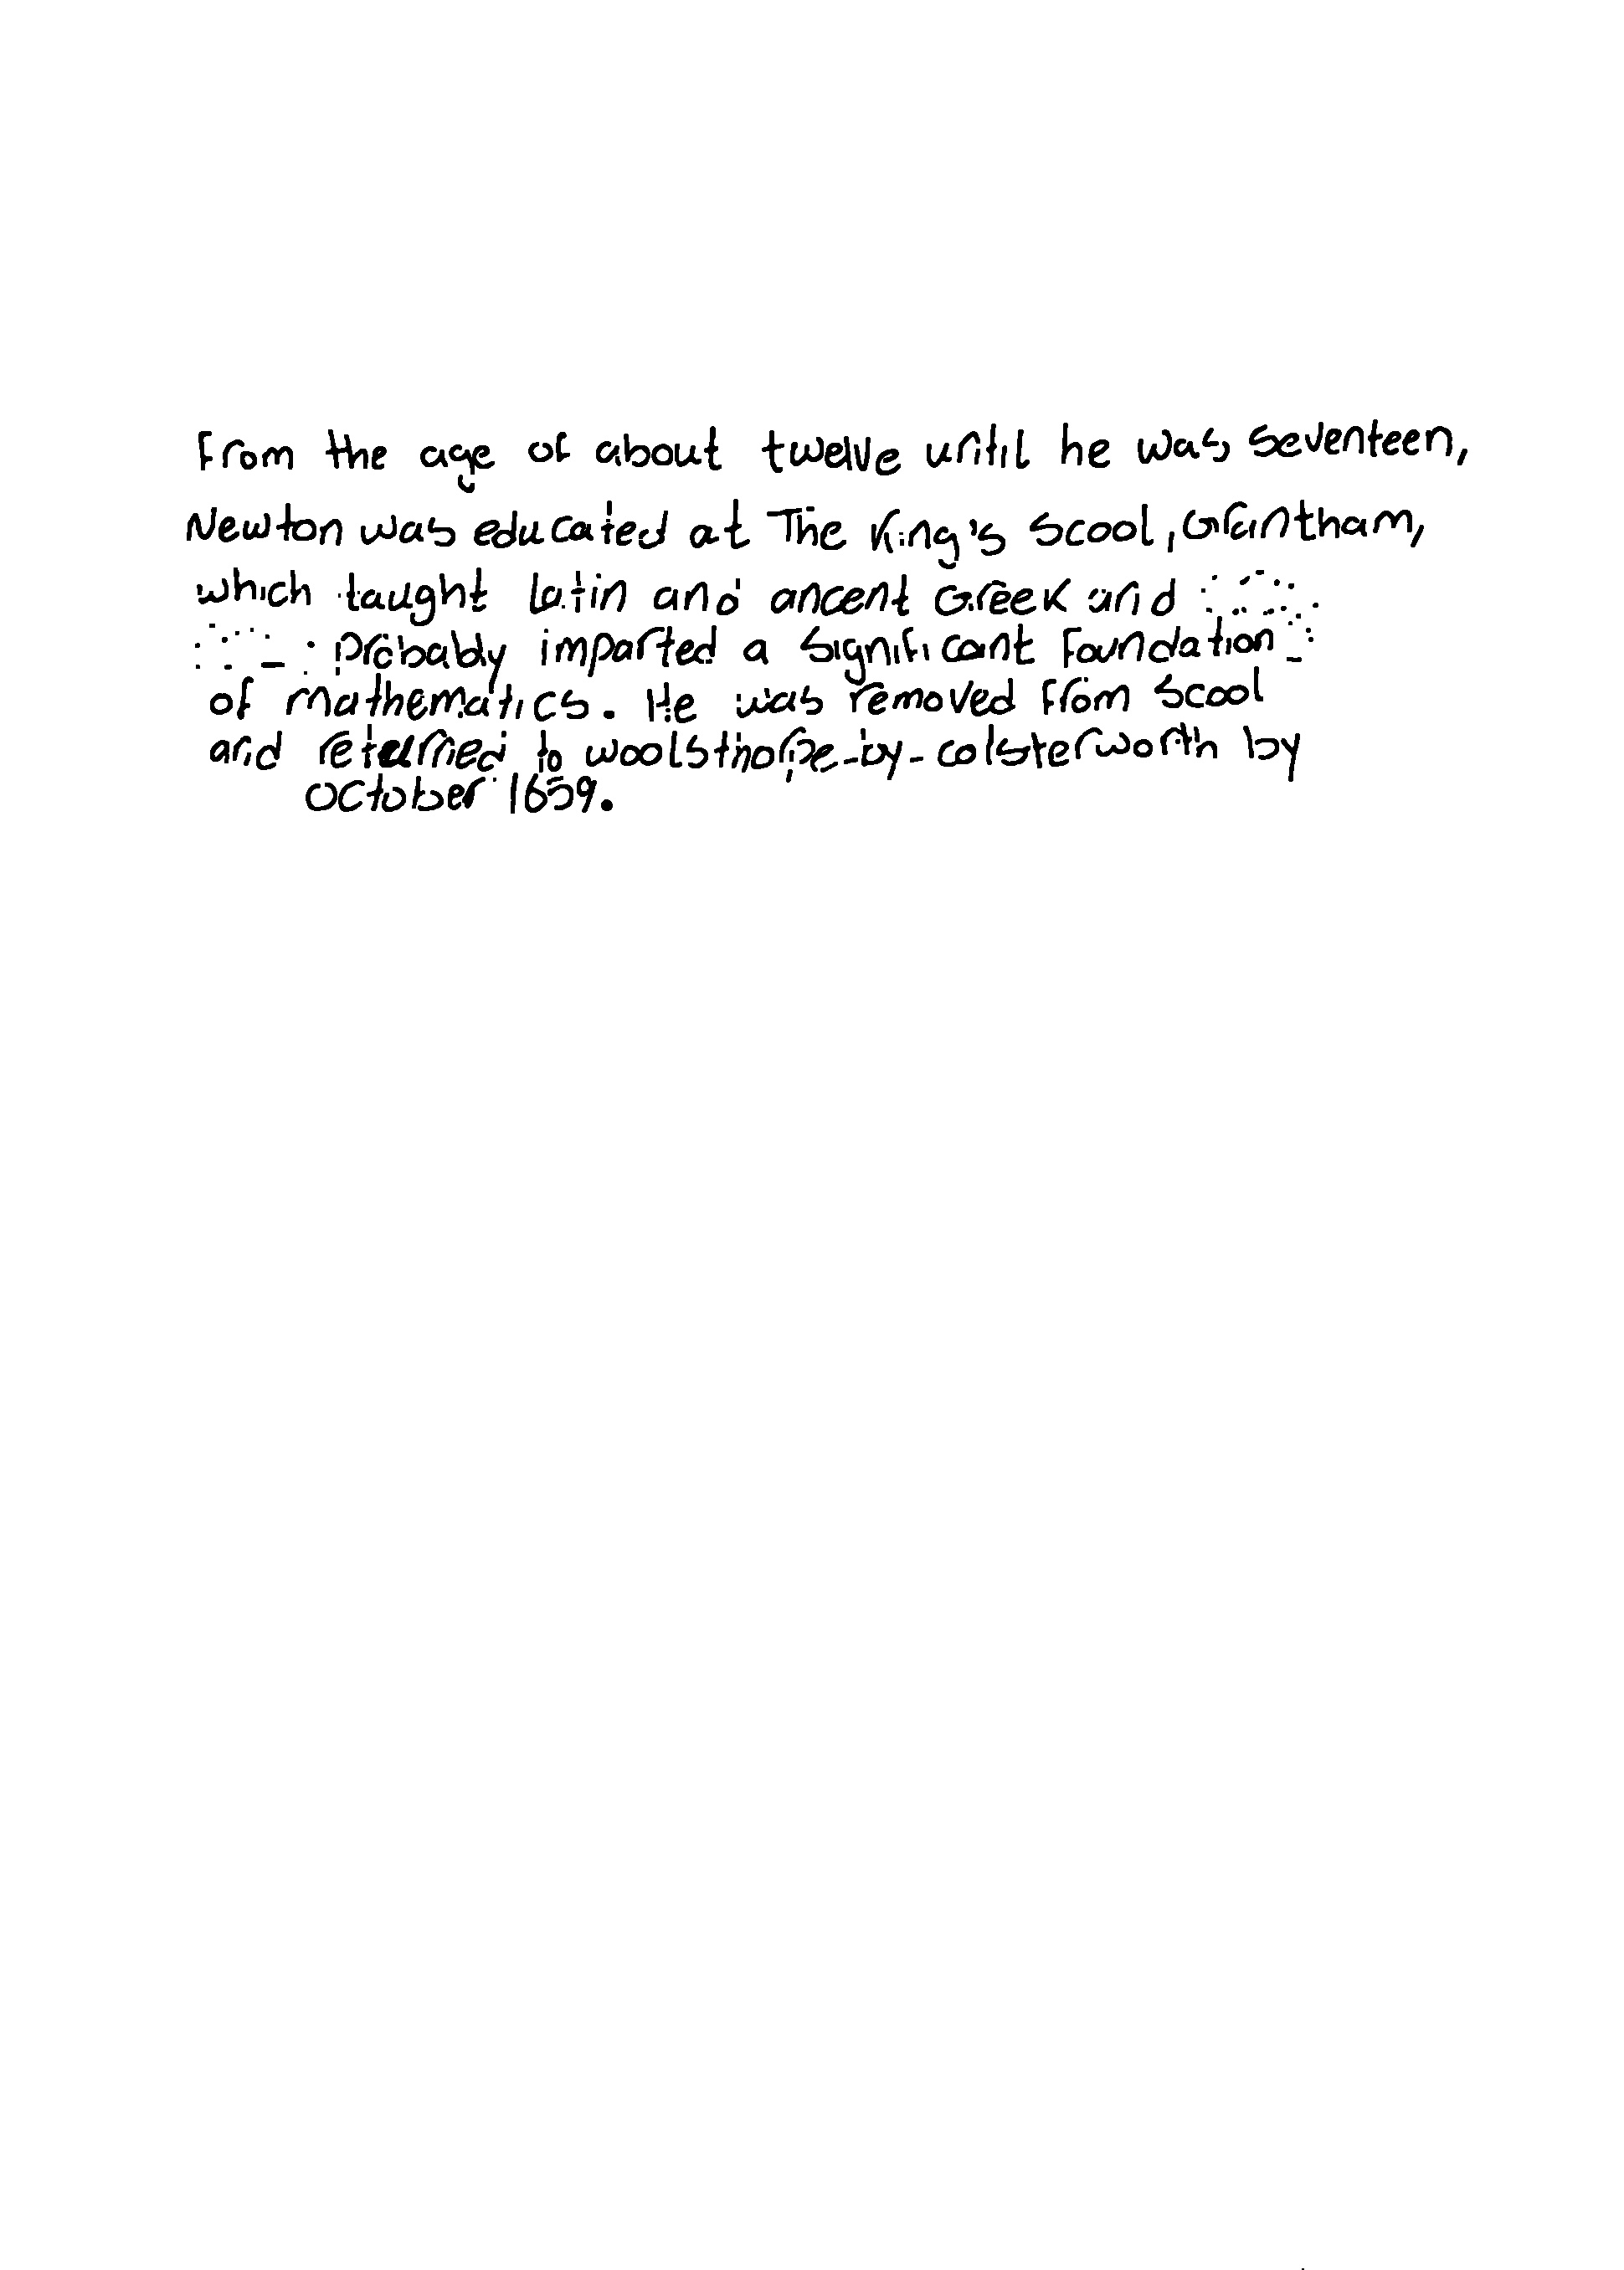 From the age of about twelve until he was seventeen,
Newton was educated at The King's Scool, Grantham,
which taught latin and ancent Greek and
probably imparted a significant Foundation
of mathematics. He was removed from scool
and returned to woolsthorpe-by-colsterworth by
October 1659.